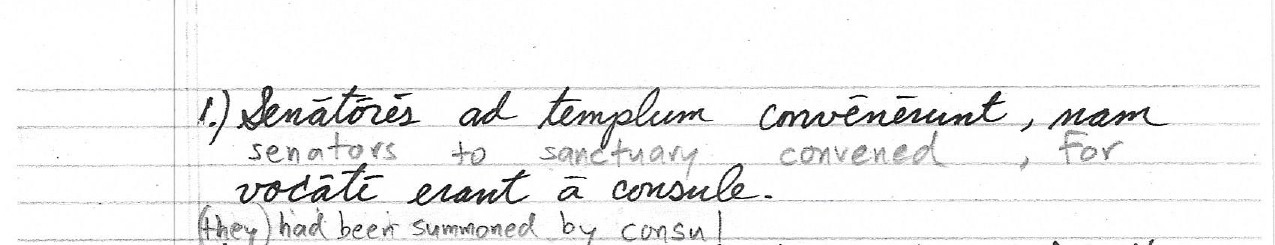 1.) Senātōrēs ad templum convēnērunt, nam
senators to sanctuary convened , for
vocātī erant ā consule.
(they) had been summoned by consul